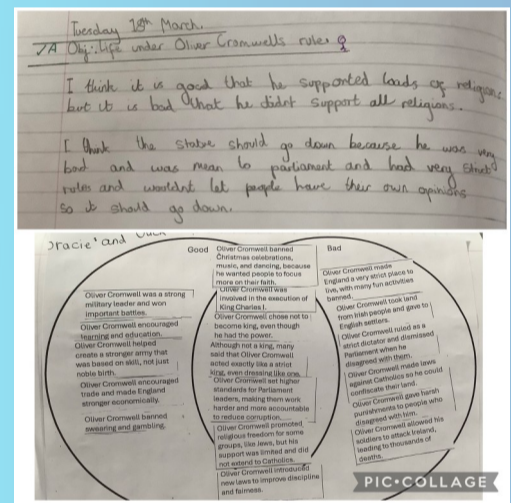 Tuesday 18th March.
JA Obj: Life under Oliver Cromwells rule
I think it is good that he supported loads of religions
but it is bad that he didnt support all religions.
I think the statue should go down because he was very
bad and was mean to parliament and had very strict
rules and wouldnt let people have their own opinions
so it should go down.
Gracie and
Good
Bad
Oliver Cromwell was a strong
military leader and won
important battles.
Oliver Cromwell encouraged
learning and education.
Oliver Cromwell helped
create a stronger army that
was based on skill, not just
noble birth.
Oliver Cromwell encouraged
trade and made England
stronger economically.
Oliver Cromwell banned
swearing and gambling.
Oliver Cromwell banned
Christmas celebrations,
music, and dancing, because
he wanted people to focus
more on their faith.
Oliver Cromwell was
involved in the execution of
King Charles I.
Oliver Cromwell chose not to
become king, even though
he had the power.
Although not a king, many
said that Oliver Cromwell
acted exactly like a strict
king, even dressing like one.
Oliver Cromwell set higher
standards for Parliament
leaders, making them work
harder and more accountable
to reduce corruption.
Oliver Cromwell promoted
religious freedom for some
groups, like Jews, but his
support was limited and did
not extend to Catholics.
Oliver Cromwell introduced
new laws to improve discipline
and fairness.
Oliver Cromwell made
England a very strict place to
live, with many fun activities
banned.
Oliver Cromwell took land
from Irish people and gave to
English settlers.
Oliver Cromwell ruled as a
strict dictator and dismissed
Parliament when he
disagreed with them.
Oliver Cromwell made laws
against Catholics so he could
confiscate their land.
Oliver Cromwell gave harsh
punishments to people who
disagreed with him.
Oliver Cromwell allowed his
soldiers to attack Ireland,
leading to thousands of
deaths.
PIC•COLLAGE